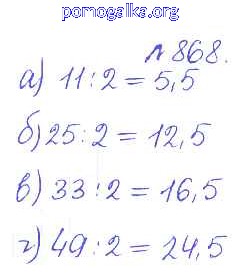 pomogalka.org
№ 868.
а) 11 : 2 = 5,5
б) 25 : 2 = 12,5
в) 33 : 2 = 16,5
г) 49 : 2 = 24,5